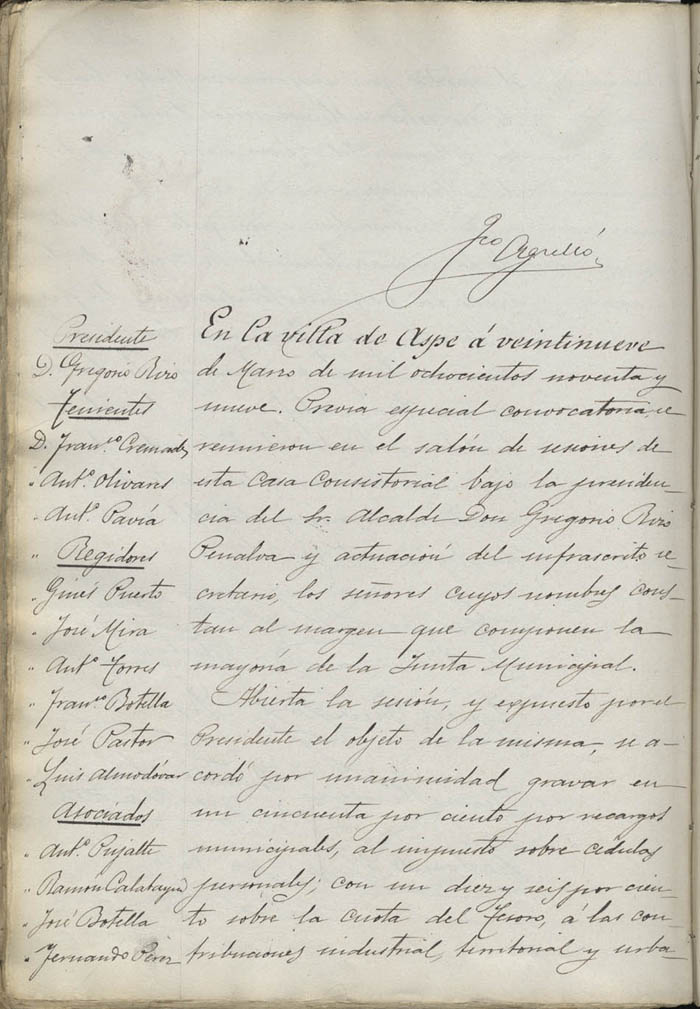 Fco Agulló
Presidente
D. Gregorio Rizo
Tenientes
D. Franco Cremades
" Anto Olivares
" Anto Pavía
" Regidores
" Ginés Puerto
" José Mira
" Anto Torres
" Franco Botella
" José Pastor
" Luis Almodóvar
Asociados
" Anto Pujalte
" Ramón Calatayud
" José Botella
" Fernando Pérez
En la villa de Aspe á veintinueve
de Marzo de mil ochocientos noventa y
nueve. Previa especial convocatoria, se
reunieron en el salón de sesiones de
esta Casa Consistorial bajo la presiden-
cia del Sr. Alcalde Don Gregorio Rizo
Penalva y actuación del infrascrito se-
cretario, los señores cuyos nombres cons-
tan al margen que componen la
mayoría de la Junta Municipal.
Abierta la sesión, y expuesto por el
Presidente el objeto de la misma, se a-
cordó por unanimidad gravar en
un cincuenta por ciento por recargos
municipales, al impuesto sobre cédulas
personales; con un diez y seis por cien-
to sobre la cuota del Tesoro, á las con-
tribuciones industrial, territorial y urba-